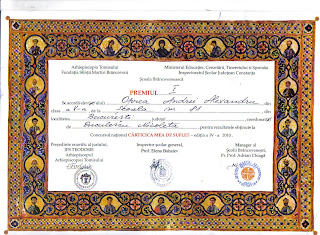 Arhiepiscopia Tomisului
Fundația Sfinții Martiri Brâncoveni
Ministerul Educației, Cercetării, Tineretului și Sportului
Inspectoratul Școlar Județean Constanța
Școala Brâncovenească
PREMIUL I
Se acordă elevei/elevului Oprea Andrei Alexandru din
clasa a V-a de la Școala
localitatea București județul coordonat de
Nicoleta pentru rezultatele obținute la
Concursul național CĂRTICICA MEA DE SUFLET - ediția a IV-a 2011.
Președinte onorific al juriului,
ÎPS TEODOSIE
Arhiepiscopul
Arhiepiscopiei Tomisului
Inspector școlar general,
Prof. Elena
Manager al
Școlii Brâncovenești,
Pr. Prof. Adrian